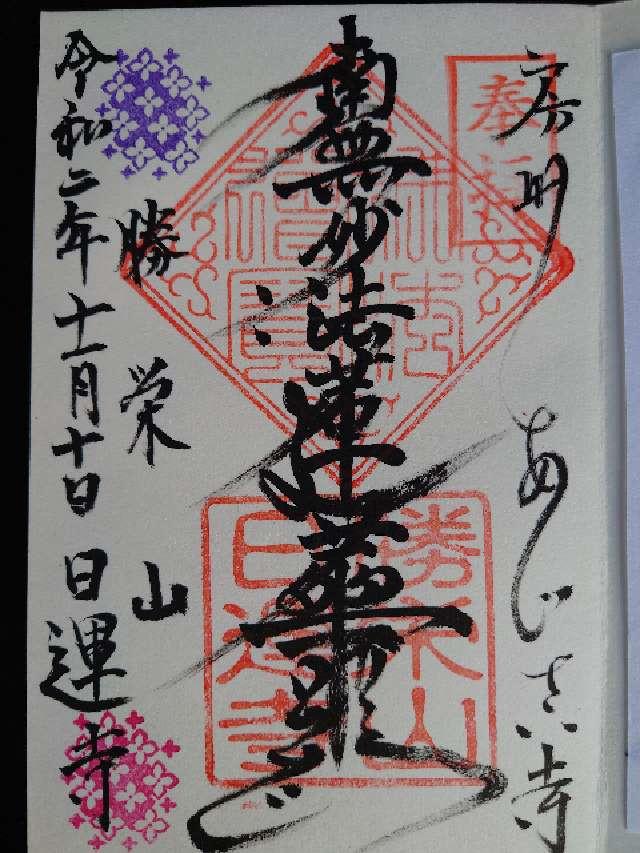 房州 あじさい寺
奉拝
南無妙法蓮華経
勝栄山
日運寺
勝栄山
令和二年十一月十日 日運寺